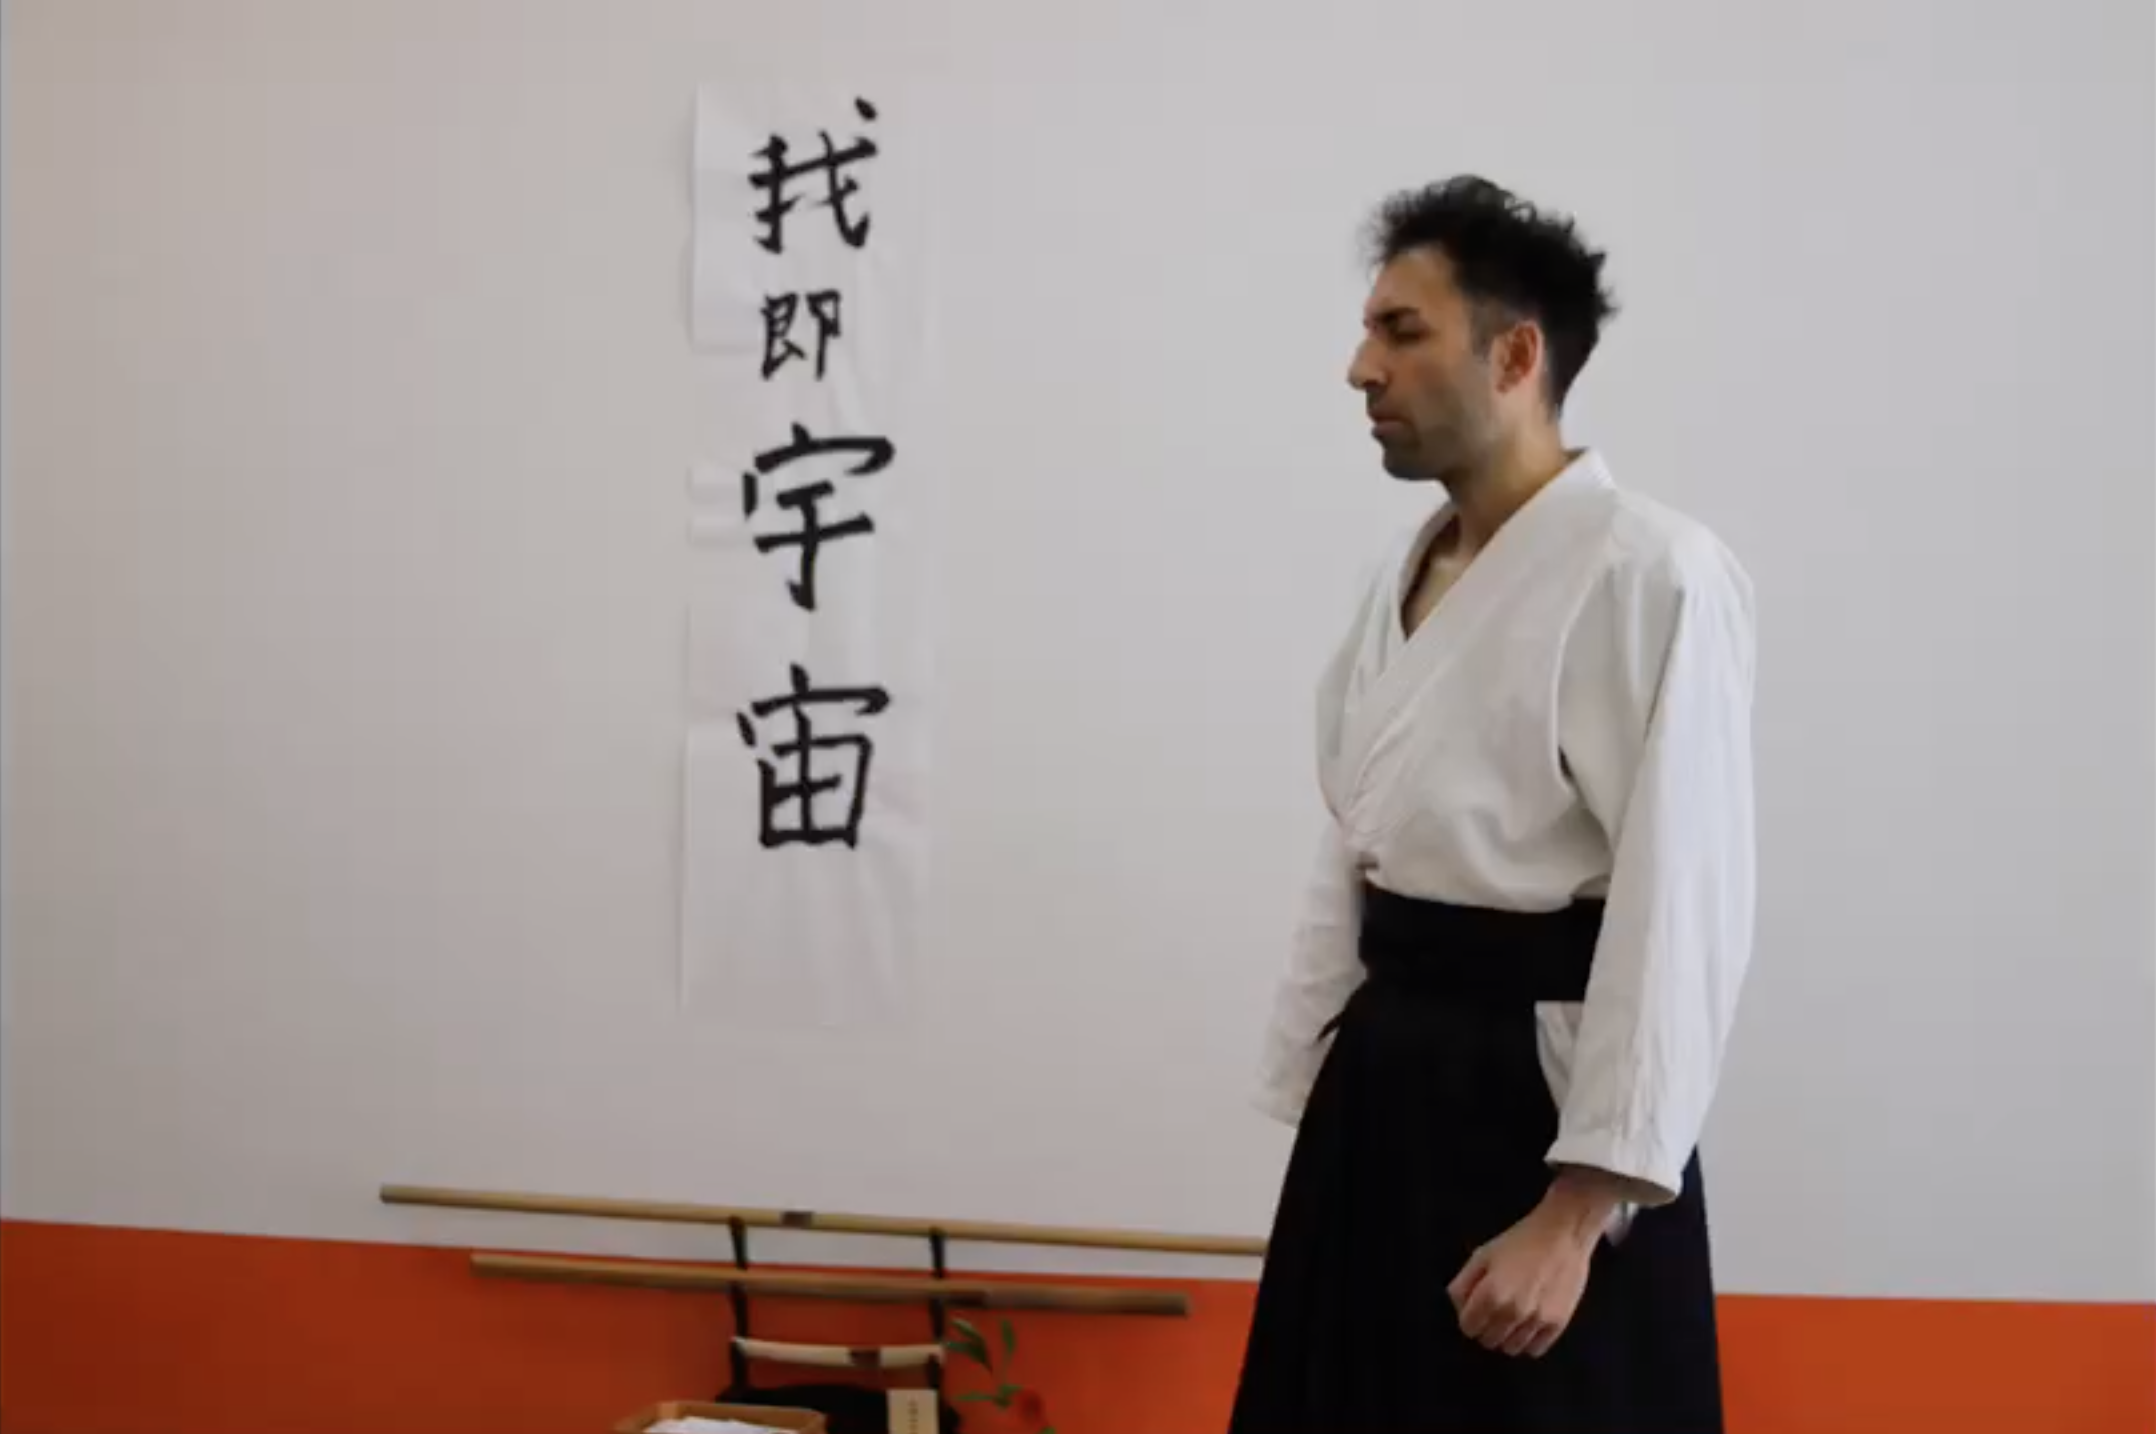 我即宇宙